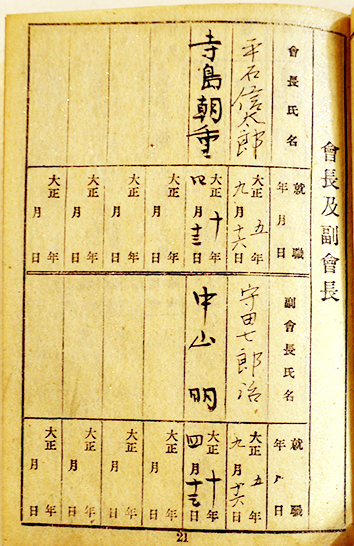 會長及副會長
會長氏名
就職年月日
平石信太郎
大正五年九月十六日
寺島朝重
大正十年四月十三日
大正 年 月 日
大正 年 月 日
大正 年 月 日
大正 年 月 日
副會長氏名
就職年月日
守田七郎治
大正五年九月十六日
中山明
大正十年四月十三日
大正 年 月 日
大正 年 月 日
大正 年 月 日
大正 年 月 日
21